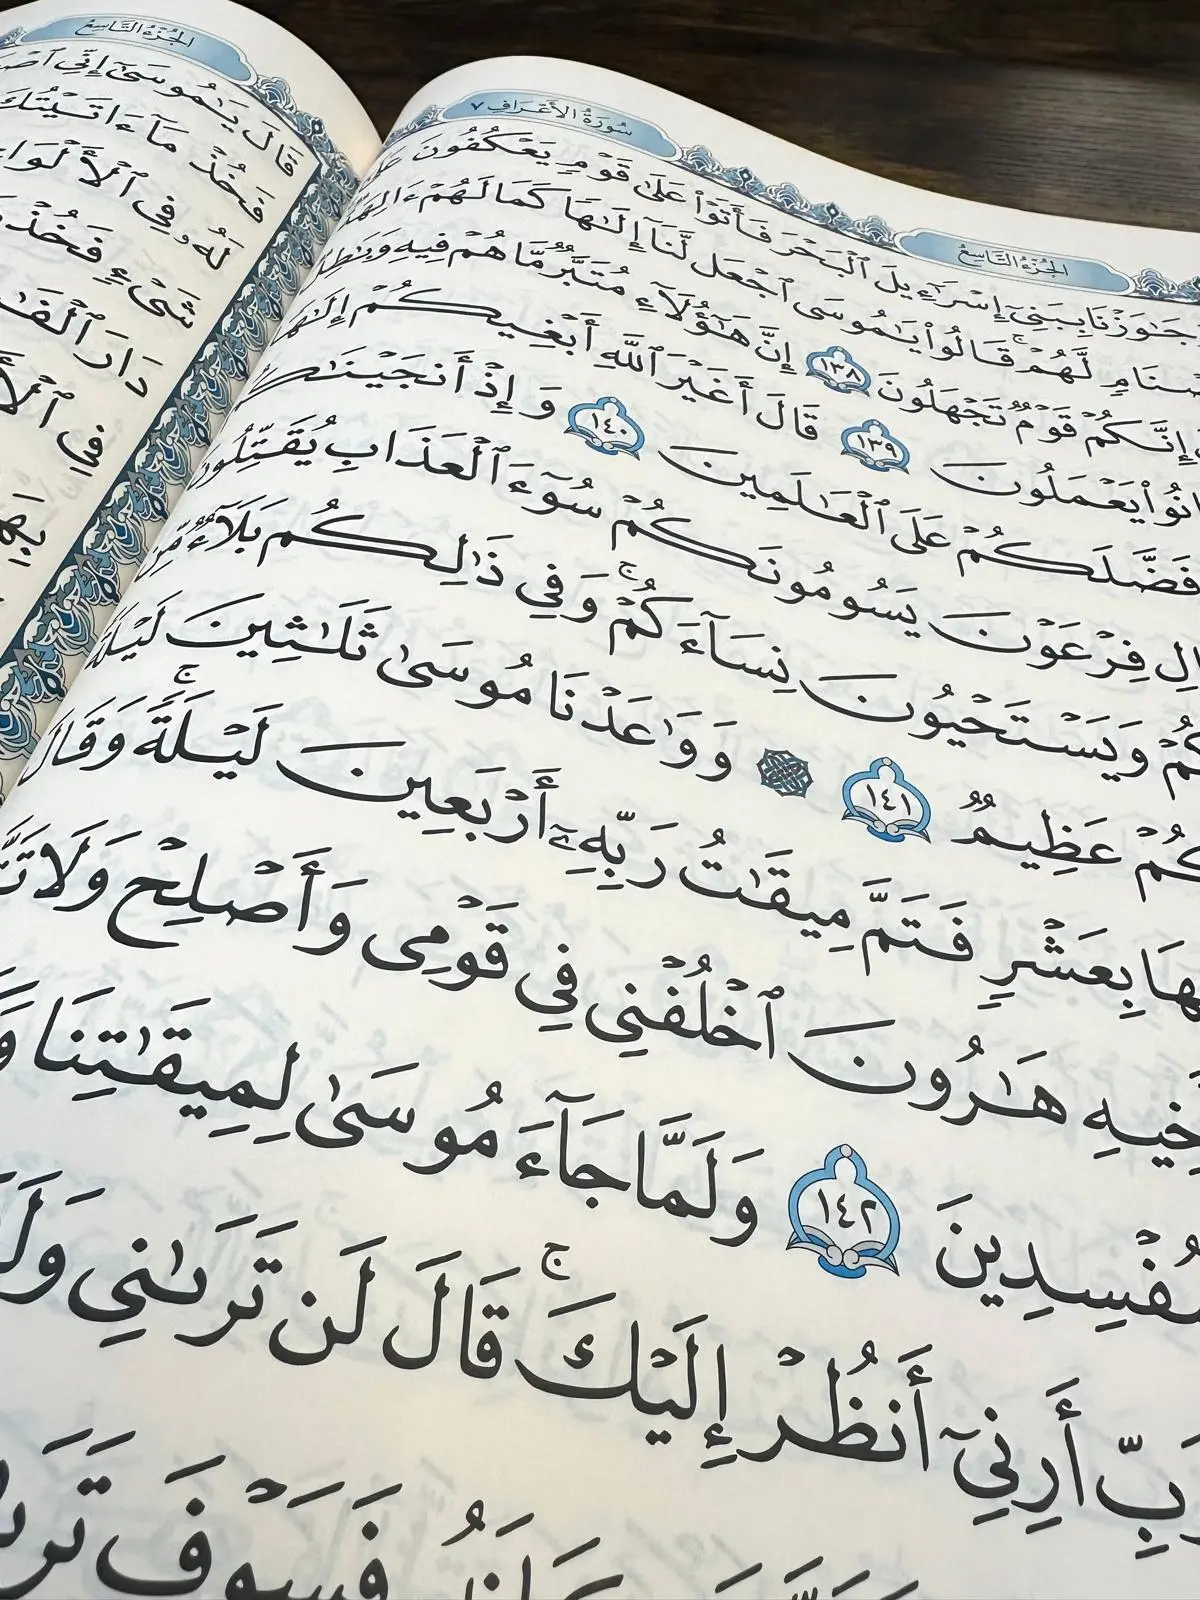 سُورَةُ الأَعْرَافِ ٧
الجُزْءُ التَّاسِعُ
جَٰوَزْنَا بِبَنِىٓ إِسْرَٰٓءِيلَ ٱلْبَحْرَ فَأَتَوْا۟ عَلَىٰ قَوْمٍ يَعْكُفُونَ
لَّهُمْ ۚ قَالُوا۟ يَٰمُوسَى ٱجْعَل لَّنَآ إِلَٰهًا كَمَا لَهُمْ ءَالِهَةٌ
إِنَّكُمْ قَوْمٌ تَجْهَلُونَ ١٣٨ إِنَّ هَٰٓؤُلَآءِ مُتَبَّرٌ مَّا هُمْ فِيهِ وَبَٰطِلٌ
يَعْمَلُونَ ١٣٩ قَالَ أَغَيْرَ ٱللَّهِ أَبْغِيكُمْ إِلَٰهًا
فَضَّلَكُمْ عَلَى ٱلْعَٰلَمِينَ ١٤٠ وَإِذْ أَنجَيْنَٰكُم
فِرْعَوْنَ يَسُومُونَكُمْ سُوٓءَ ٱلْعَذَابِ يُقَتِّلُونَ
وَيَسْتَحْيُونَ نِسَآءَكُمْ ۚ وَفِى ذَٰلِكُم بَلَآءٌ مِّن
عَظِيمٌ ١٤١ وَوَٰعَدْنَا مُوسَىٰ ثَلَٰثِينَ لَيْلَةً
بِعَشْرٍ فَتَمَّ مِيقَٰتُ رَبِّهِۦٓ أَرْبَعِينَ لَيْلَةً ۚ وَقَالَ
هَٰرُونَ ٱخْلُفْنِى فِى قَوْمِى وَأَصْلِحْ وَلَا
١٤٢ وَلَمَّا جَآءَ مُوسَىٰ لِمِيقَٰتِنَا
أَرِنِىٓ أَنظُرْ إِلَيْكَ ۚ قَالَ لَن تَرَىٰنِى
فَسَوْفَ
الجُزْءُ التَّاسِعُ
قَالَ يَٰمُوسَىٰٓ إِنِّى
فَخُذْ مَآ ءَاتَيْتُكَ
لَهُۥ فِى ٱلْأَلْوَاحِ
شَىْءٍ فَخُذْهَا
دَارَ
فِى